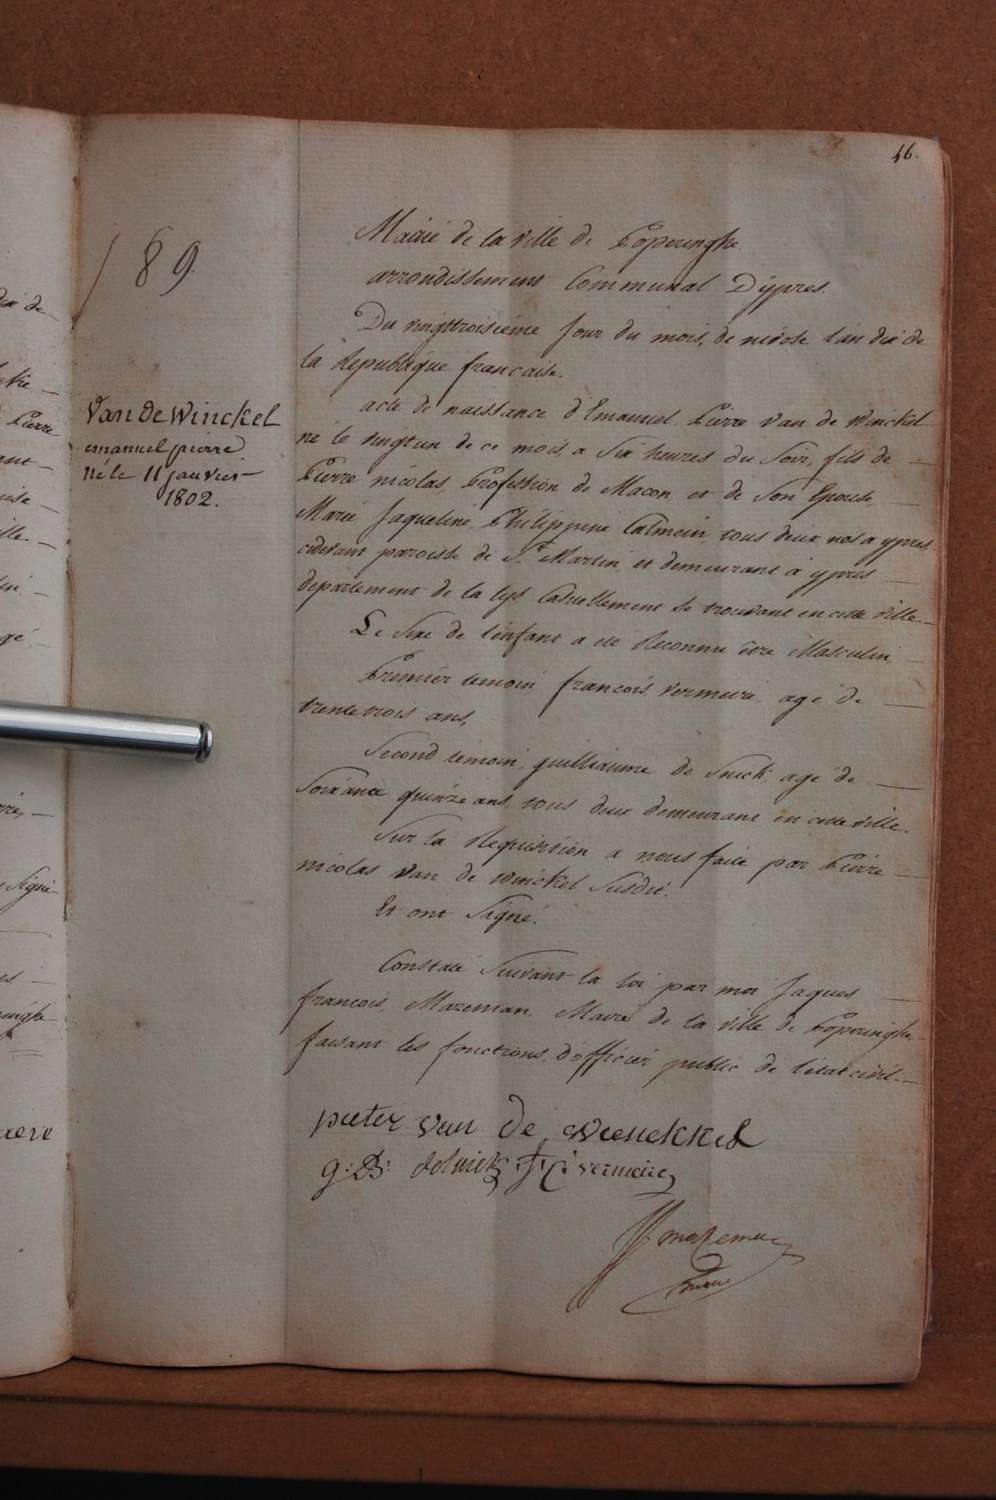 46.
89
Mairie de la ville de Poperinghe
arrondissement Communal D'ypres.
Du vingttroisieme jour du mois, de nivôse l'an dix de
la Republique francaise.
Van de Winckel
emanuel pierre
né le 11 janvier
1802.
acte de naissance d'Emanuel Pierre van de Winckel
né le vingtun de ce mois, a Six heures du Soir, fils de
Pierre nicolas, Profession de Macon, et de Son Epouse,
Marie Jaqueline Philippine Calmein, tous deux nés a ypres
cidevant paroisse de St. Martin, et demeurant à ypres
departement de la lys Casuellement se trouvant en cette ville
Le Sexe de l'enfant a été Reconnu être Masculin
Premier temoin francois vermeire agé de
trente trois ans,
Second temoin, guilliaume de Snick, agé de
Soixante quinze ans, tous deux demeurant en cette ville.
Sur la Requisition a nous faite par Pierre
nicolas van de winckel Susdit.
Et ont Signé.
Constaté Suivant la loi par moi Jaques
francois, Mazeman, Maire de la ville de Poperinghe
faisant les fonctions, d'officier public de l'état civil.
pieter van de wienekkel
g: B: desnick F: C: vermeire
mazeman
maire